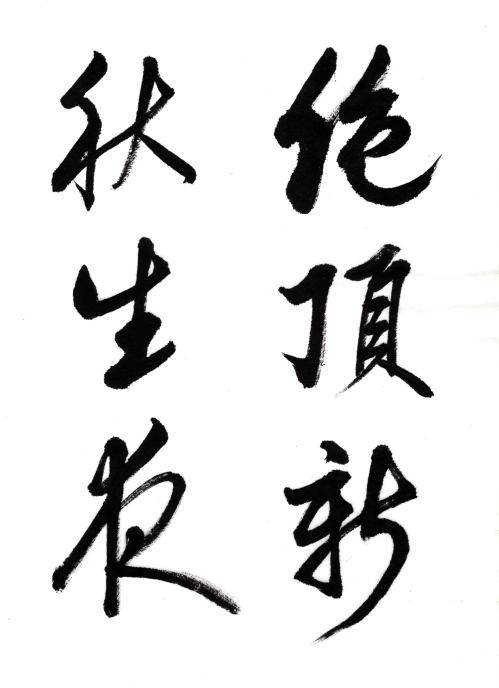 絶頂新
秋生夜